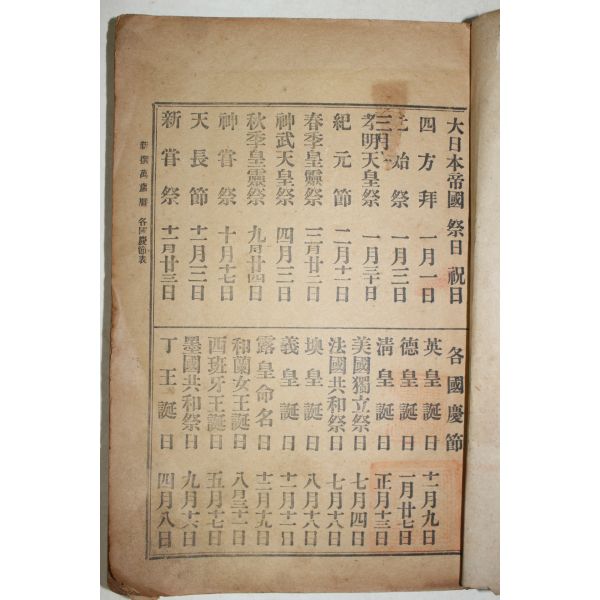 大日本帝國 祭日 祝日
四方拜 一月一日
元始祭 一月三日
孝明天皇祭 一月三十日
紀元節 二月十一日
春季皇靈祭 三月廿二日
神武天皇祭 四月三日
秋季皇靈祭 九月廿四日
神嘗祭 十月十七日
天長節 十一月三日
新嘗祭 十一月廿三日
各國慶節
英皇誕日 十一月九日
德皇誕日 一月廿七日
淸皇誕日 正月十三日
美國獨立祭日 七月四日
法國共和祭日 七月十八日
墺皇誕日 八月十八日
義皇誕日 十一月十一日
露皇命名日 十二月十九日
和蘭女王誕日 八月三十一日
西班牙王誕日 五月十七日
墨國共和祭日 九月十六日
丁王誕日 四月八日
新撰萬歲曆 各國慶節表